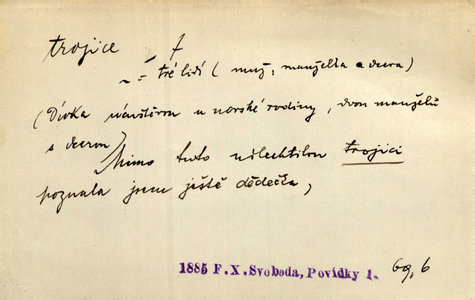 trojice , f
~ = tré lidí ( muž, manželka a dcera )
( Dívka návštěvou u norské rodiny, dvou manželů
s dcerou )
Mimo tuto ušlechtilou trojici
poznala jsem ještě dědečka,
1885 F. X. Svoboda, Povídky 1. 69, 6